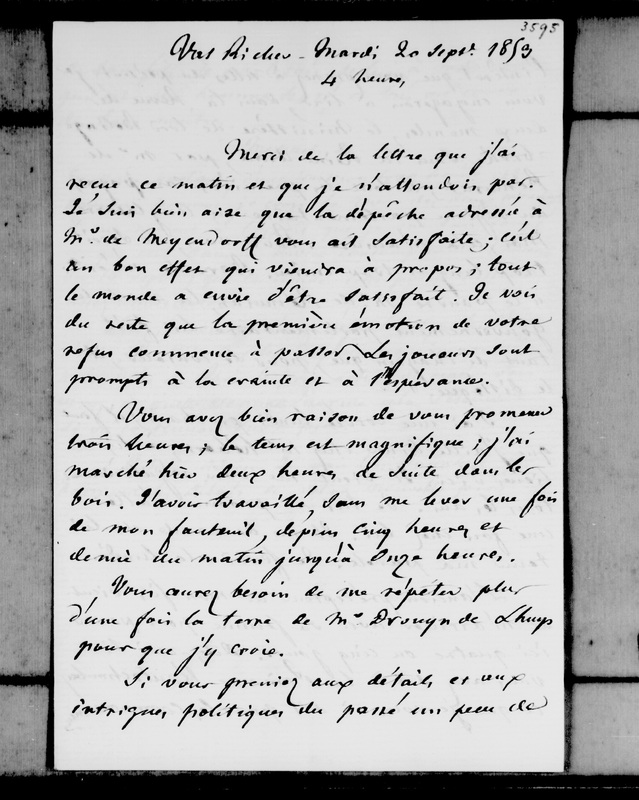 3595
Val Richer - Mardi 20 Sept. 1853
4 heures
Merci de la lettre que j'ai
reçue ce matin et que je n'attendois pas.
Je suis bien aise que la dépêche adressée à
Mr. de Meyendorff vous ait satisfaite ; c'est
un bon effet qui viendra à propos ; tout
le monde a envie d'être satisfait. Je vois
du reste que la première émotion de votre
refus commence à passer. Les joueurs sont
prompts à la crainte et à l'espérance.
Vous avez bien raison de vous promener
trois heures ; le tems est magnifique ; j'ai
marché hier deux heures de suite dans les
bois. J'avois travaillé, sans me lever une fois
de mon fauteuil, depuis cinq heures et
demie du matin jusqu'à onze heures.
Vous aurez besoin de me répéter plus
d'une fois la terre de Mr Drouyn de Lhuys
pour que j'y croie.
Si vous preniez aux détails et aux
intrigues politiques du passé un peu de